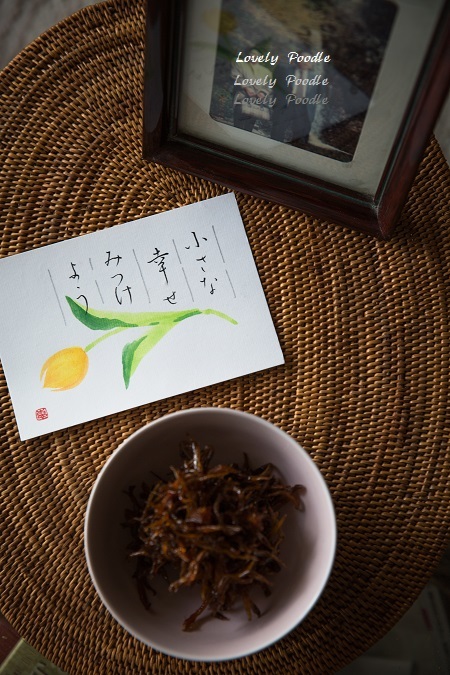 Lovely Poodle
Lovely Poodle
Lovely Poodle
小さな
幸せ
みつけ
よう